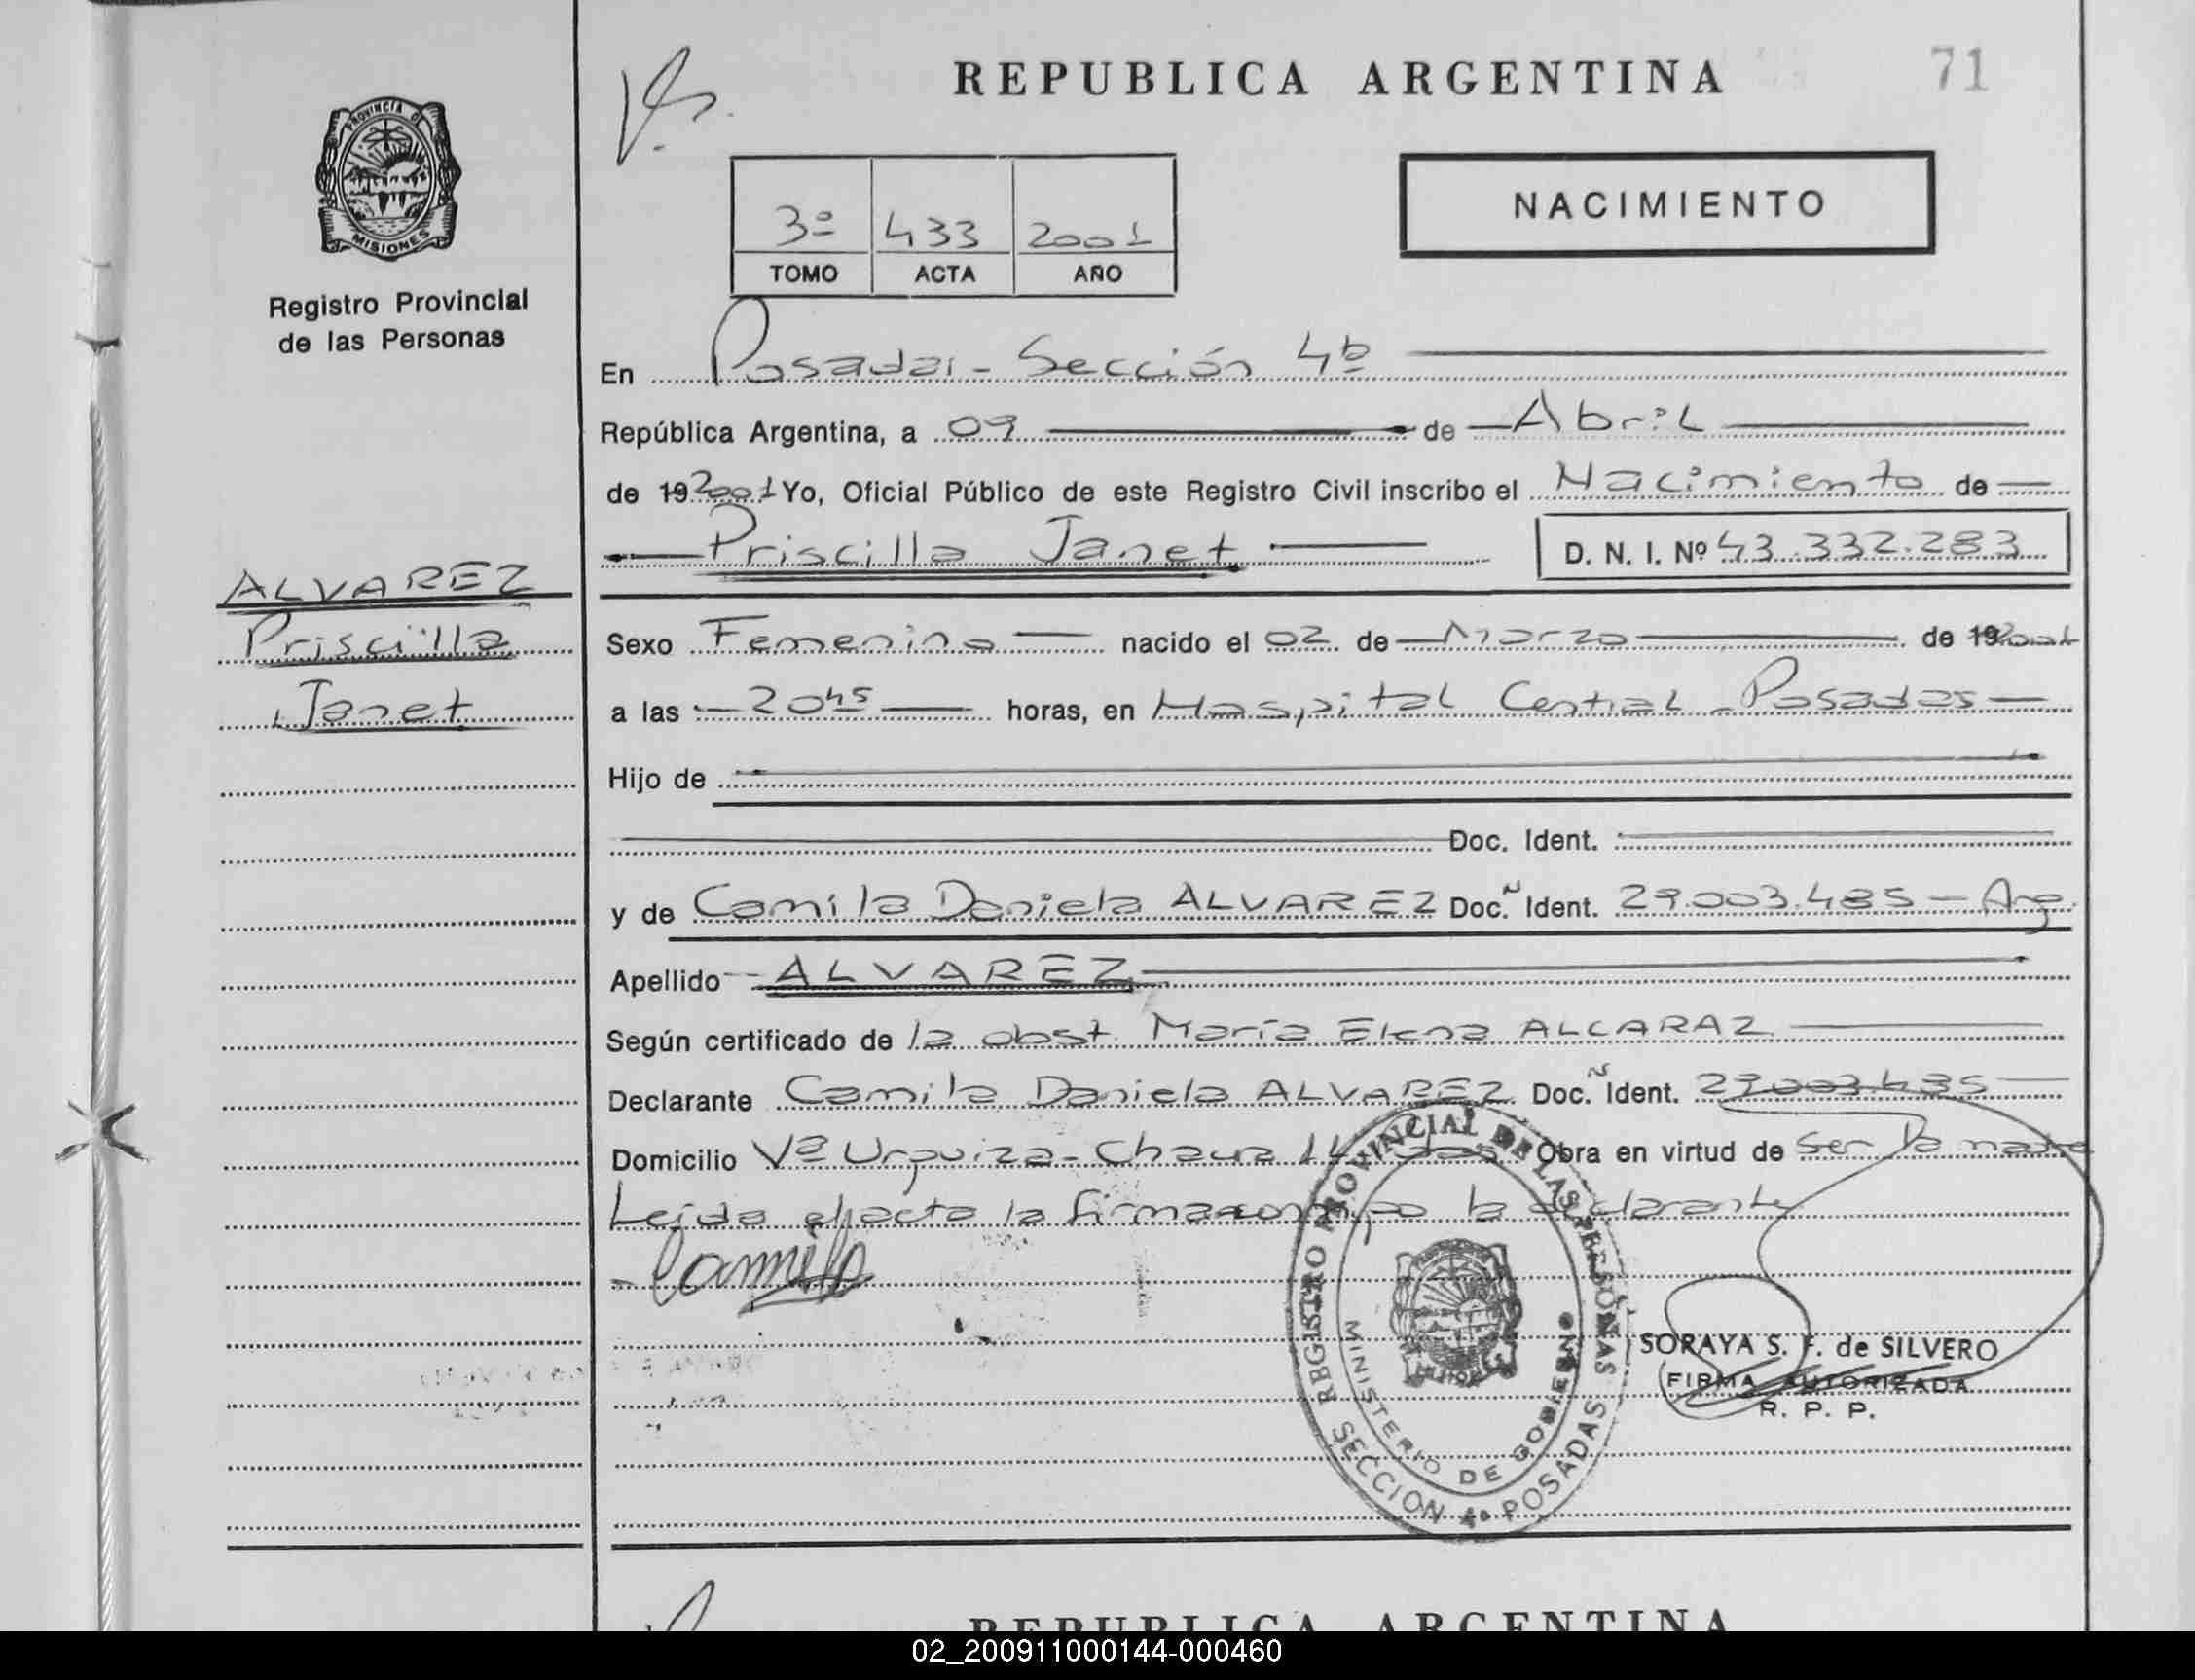 REPUBLICA ARGENTINA
71
PROVINCIA D
MISIONES
Registro Provincial
de las Personas
NACIMIENTO
3º 433 2001
TOMO ACTA AÑO
En Posadas - Sección 4ª
República Argentina, a 09 de Abril
de 19 2001 Yo, Oficial Público de este Registro Civil inscribo el Nacimiento de
Priscilla Janet D. N. I. Nº 43.332.283
ALVAREZ
Priscilla
Janet
Sexo Femenino nacido el 02 de Marzo de 19 2001
a las 20 45 horas, en Hospital Central - Posadas
Hijo de
Doc. Ident.
y de Camila Daniela ALVAREZ Doc. Ident. 29.003.485 - Arg.
Apellido ALVAREZ
Según certificado de la obst. María Elena ALCARAZ
Declarante Camila Daniela ALVAREZ Doc. Ident. 29.003.485
Domicilio Vª Urquiza - Chacra 14 Obra en virtud de ser la madre
Leída el acta la firma conmigo la declarante
Camila
REGISTRO PROVINCIAL DE LAS PERSONAS
MINISTERIO DE GOBIERNO
SECCION 4ª POSADAS
SORAYA S. F. de SILVERO
FIRMA AUTORIZADA
R. P. P.
REPUBLICA ARGENTINA
02_200911000144-000460